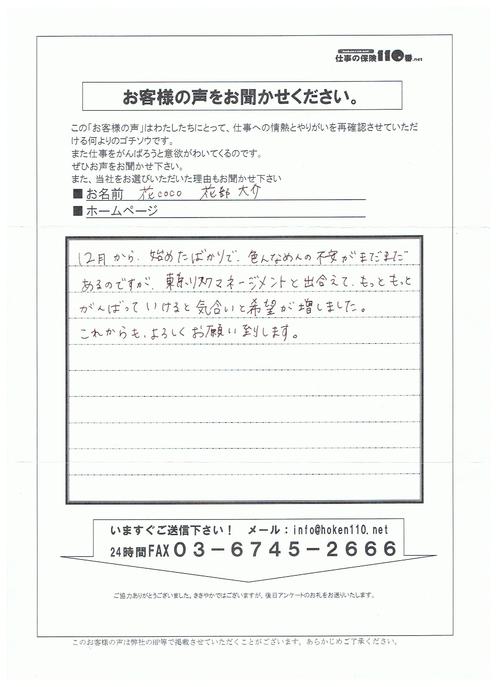 仕事の保険110番.net
お客様の声をお聞かせください。
この「お客様の声」はわたしたちにとって、仕事への情熱とやりがいを再確認させていただ
ける何よりのゴチソウです。
また仕事をがんばろうと意欲がわいてくるのです。
ぜひお声をお聞かせ下さい。
また、当社をお選びいただいた理由もお聞かせ下さい
■お名前 花coco 花部 大介
■ホームページ
12月から、始めたばかりで、色んなめんの不安がまだまだ
あるのですが、東京リスクマネージメントと出合えて、もっともっと
がんばっていけると気合いと希望が増しました。
これからも、よろしくお願い致します。
いますぐご送信下さい！ メール：info@hoken110.net
24時間FAX０３－６７４５－２６６６
ご協力ありがとうございました。ささやかではございますが、後日アンケートのお礼をお送りいたします。
このお客様の声は弊社のHP等で掲載させていただくことがございます。あらかじめご了承ください。